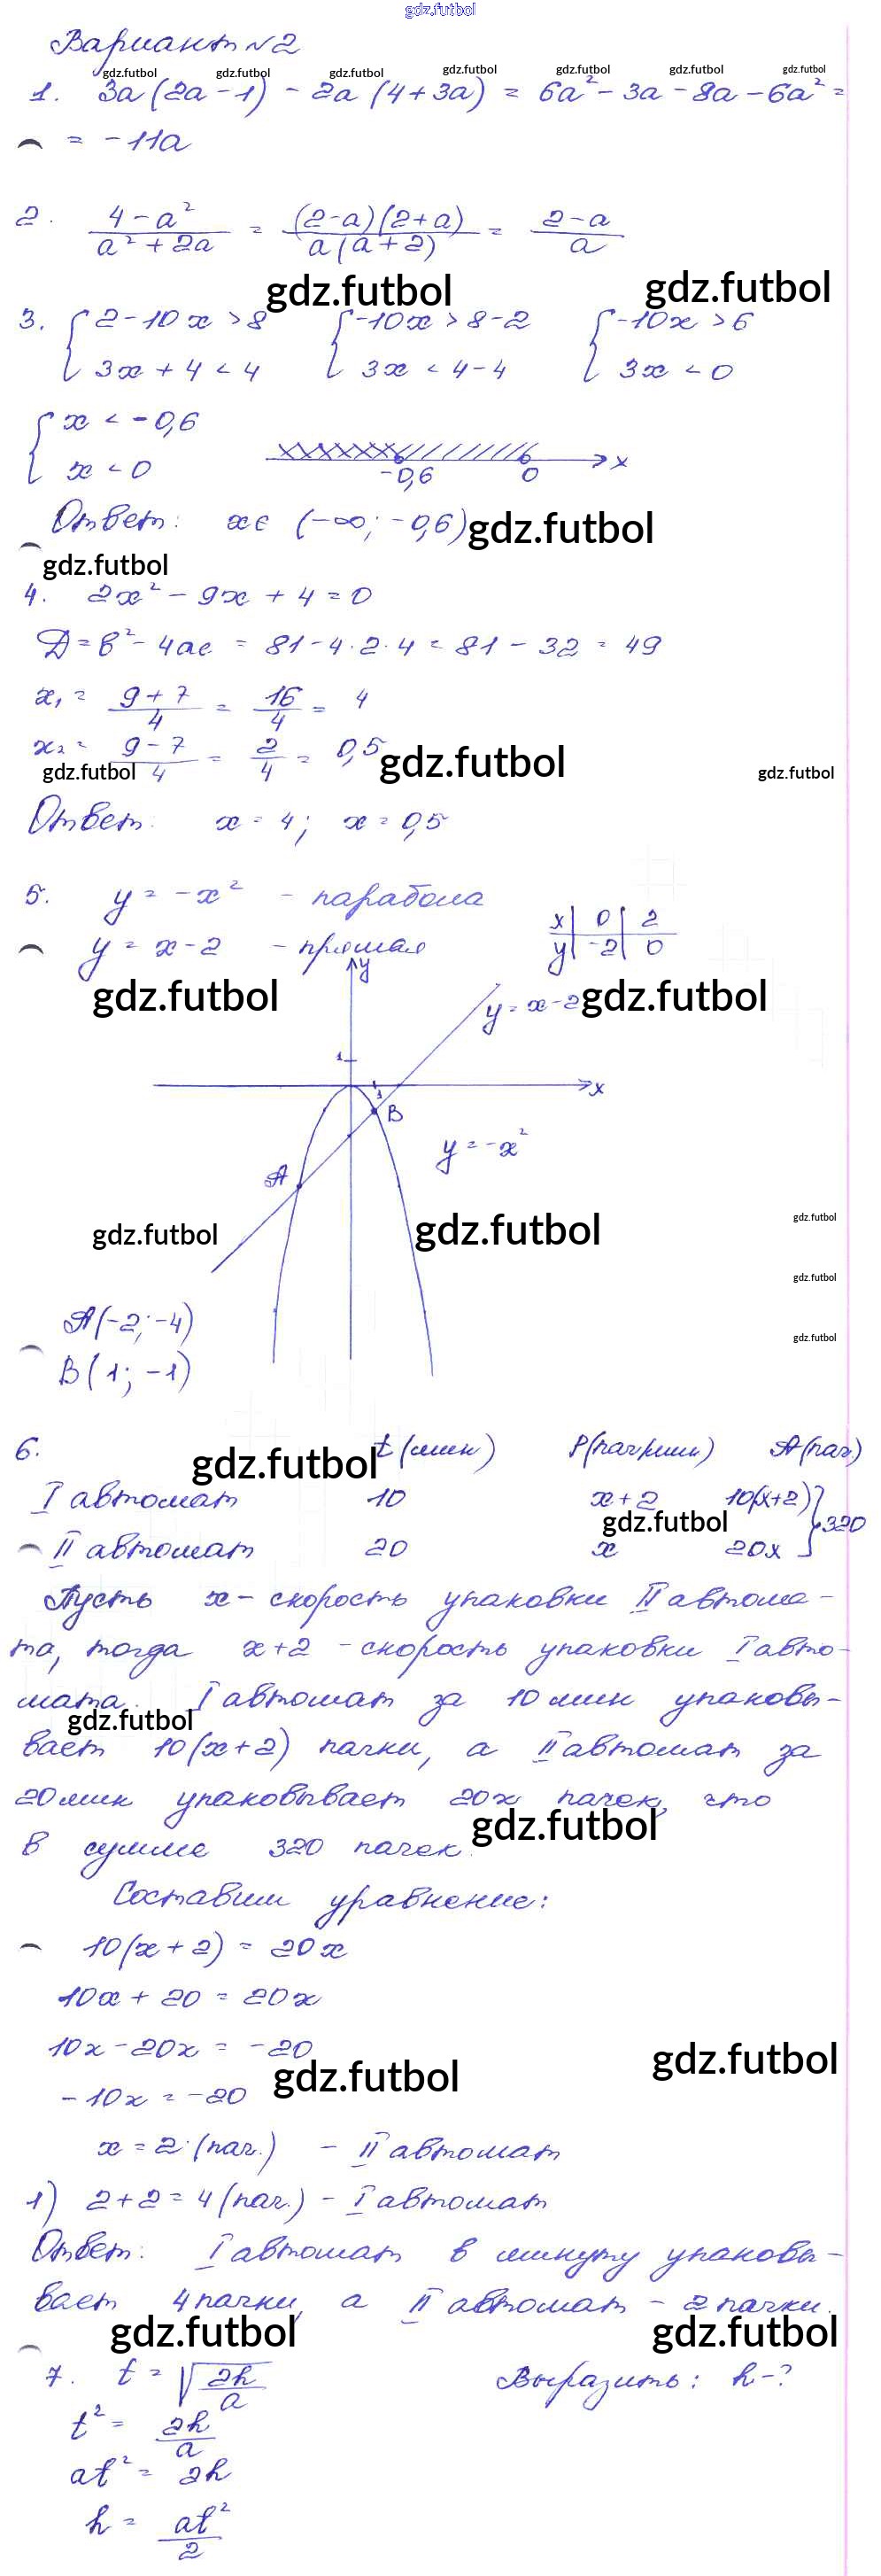 gdz.futbol
Вариант №2
gdz.futbol gdz.futbol gdz.futbol gdz.futbol gdz.futbol gdz.futbol gdz.futbol
1. 3a(2a-1) - 2a(4+3a) = 6a² - 3a - 8a - 6a² =
= -11a
2. (4-a²)/(a²+2a) = ((2-a)(2+a))/(a(a+2)) = (2-a)/a
gdz.futbol gdz.futbol
3. { 2-10x > 8 { -10x > 8-2 { -10x > 6
3x + 4 < 4 3x < 4-4 3x < 0
{ x < -0,6
x < 0 -0,6 0 x
Ответ: x∈ (-∞; -0,6) gdz.futbol
gdz.futbol
4. 2x² - 9x + 4 = 0
Д = b² - 4ac = 81 - 4·2·4 = 81 - 32 = 49
x₁ = (9+7)/4 = 16/4 = 4
x₂ = (9-7)/4 = 2/4 = 0,5 gdz.futbol
gdz.futbol gdz.futbol
Ответ: x = 4; x = 0,5
5. y = -x² - парабола
x 0 2
y = x-2 - прямая
y -2 0
y
gdz.futbol y = x-2 gdz.futbol
1
x
1
B
y = -x²
A
gdz.futbol
gdz.futbol gdz.futbol
gdz.futbol
A(-2; -4)
gdz.futbol
B(1; -1)
6. gdz.futbol t(мин) P(пач/мин) A(пач.)
I автомат 10 x+2 10(x+2)
gdz.futbol } 320
II автомат 20 x 20x
Пусть x - скорость упаковки II автома-
та, тогда x+2 - скорость упаковки I авто-
мата. I автомат за 10 мин упаковы-
gdz.futbol
вает 10(x+2) пачки, а II автомат за
20 мин упаковывает 20x пачек, что
gdz.futbol
в сумме 320 пачек.
Составим уравнение:
10(x+2) = 20x
10x + 20 = 20x
10x - 20x = -20
gdz.futbol gdz.futbol
-10x = -20
x = 2 (пач.) - II автомат
1) 2+2 = 4 (пач.) - I автомат
Ответ: I автомат в минуту упаковы-
вает 4 пачки, а II автомат - 2 пачки.
gdz.futbol gdz.futbol
7. t = √(2h/a) Выразить: h-?
t² = 2h/a
at² = 2h
h = at²/2